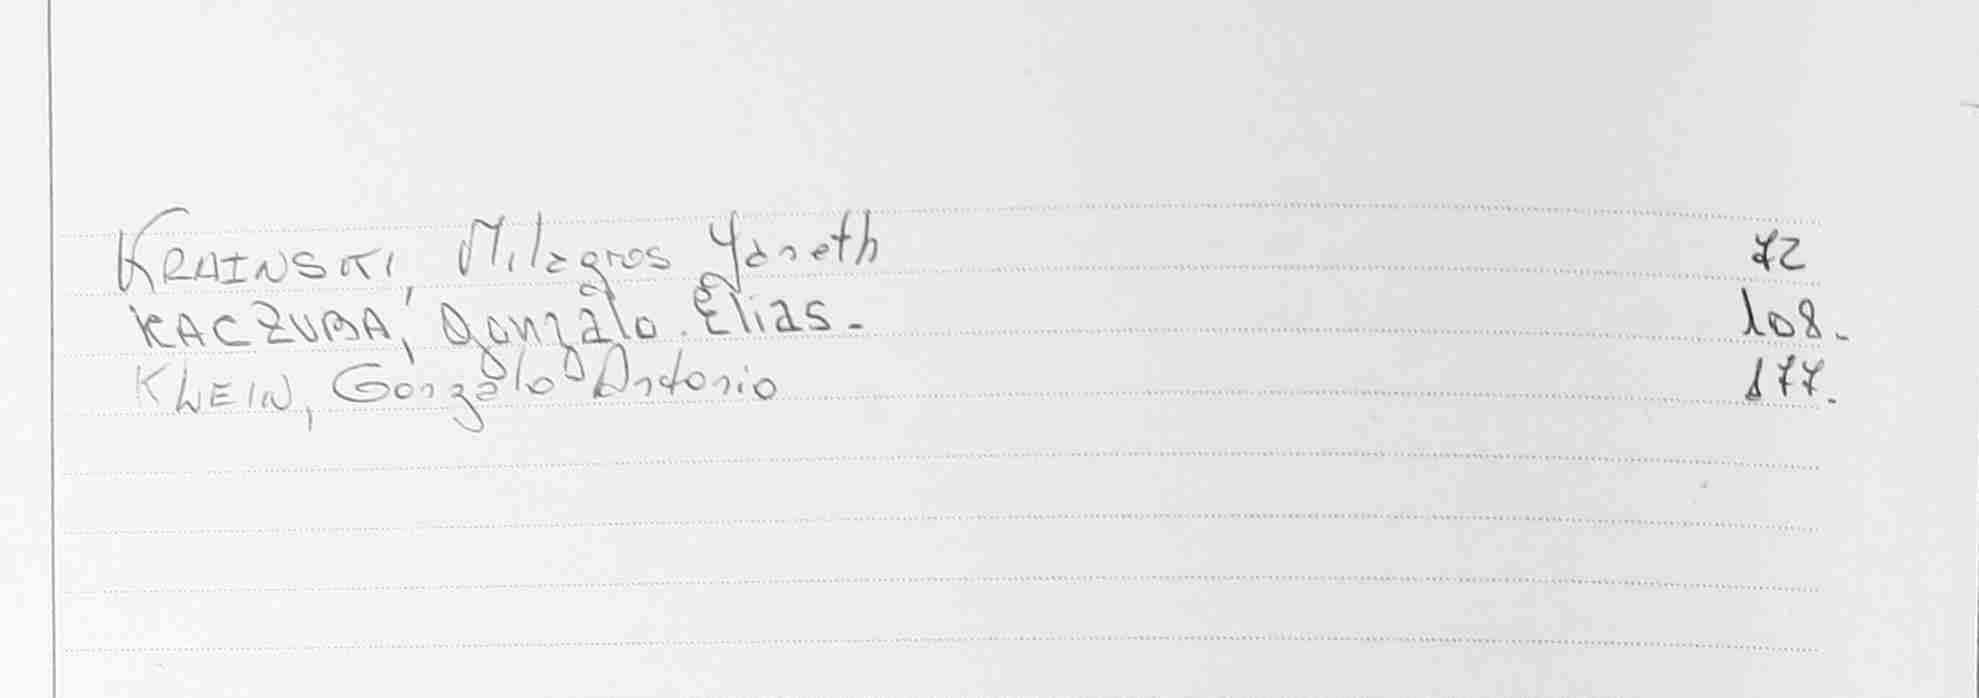 KRAINSKI, Milagros Yaneth 72
KACZUBA, Gonzalo Elias. 108.
KLEIN, Gonzalo Antonio 177.